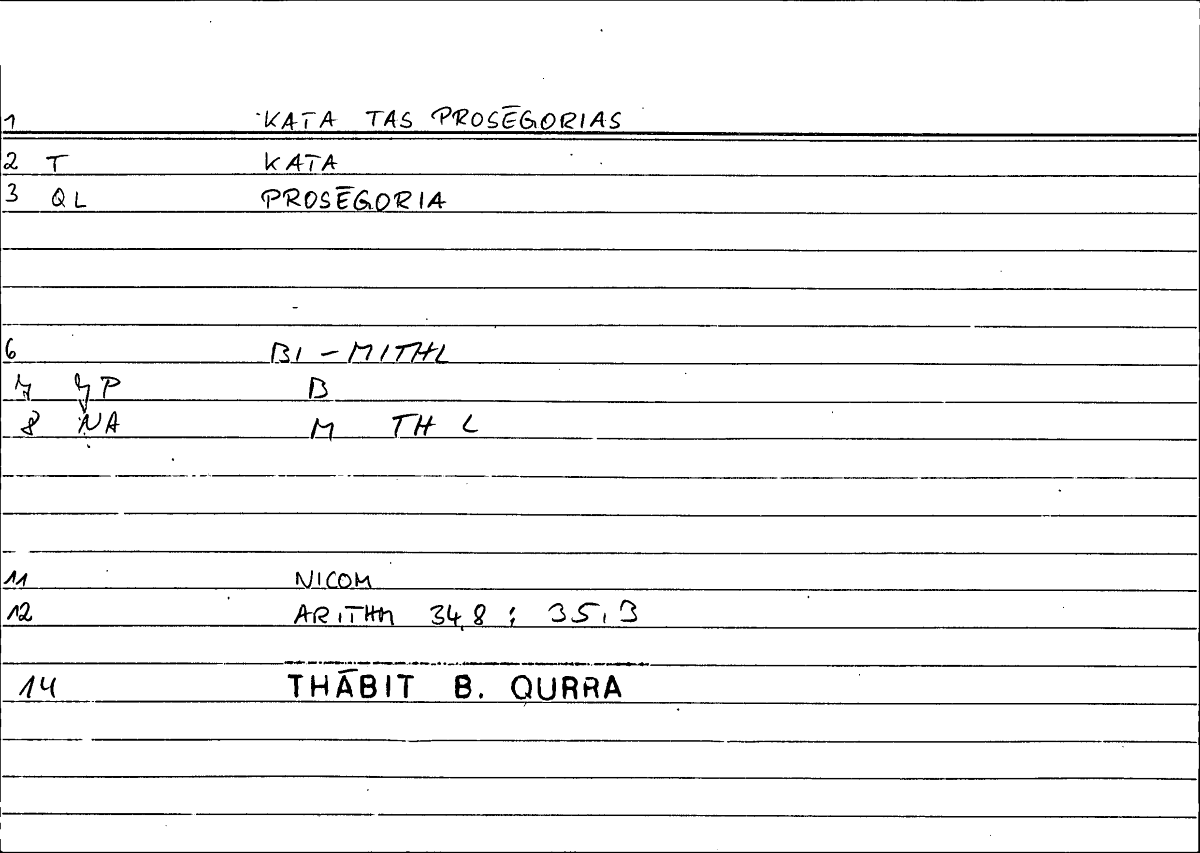 1 KATA TAS PROSĒGORIAS
2 T KATA
3 QL PROSĒGORIA
6 BI - MITHL
7 P B
8 NA M TH L
11 NICOM
12 ARITHM 34,8 ; 35,3
14 THĀBIT B. QURRA